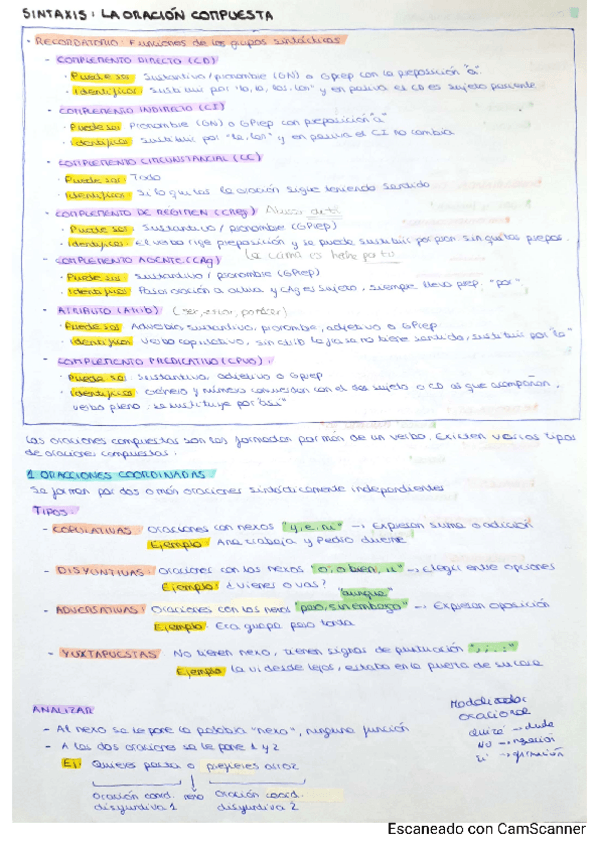 SINTAXIS: LA ORACIÓN COMPUESTA
· RECORDATORIO: Funciones de los grupos sintácticos
- COMPLEMENTO DIRECTO (CD)
· Puede ser: Sustantivo/pronombre (GN) o GPrep con la preposición "a".
· Identificar: sustituir por "lo, la, los, las" y en pasiva es CD es sujeto paciente
- COMPLEMENTO INDIRECTO (CI)
· Puede ser: Pronombre (GN) o GPrep con preposición "a"
· Identificar: sustituir por "le, les" y en pasiva el CI no cambia
- COMPLEMENTO CIRCUNSTANCIAL (CC)
· Puede ser: Todo
· Identificar: Si lo quitas la oración sigue teniendo sentido
- COMPLEMENTO DE RÉGIMEN (CReg)
· Puede ser: Sustantivo / pronombre (GPrep)
· Identificar: el verbo rige preposición y se puede sustituir por pron. sin quitar prepos.
- COMPLEMENTO AGENTE (CAg) La cama es hecha por tu
· Puede ser: sustantivo / pronombre (GPrep)
· Identificar: Pasar oración a activa y CAg es sujeto, siempre lleva prep. "por"
- ATRIBUTO (Atrib) (ser, estar, parecer)
· Puede ser: Adverbio, sustantivo, pronombre, adjetivo o GPrep
· Identificar: Verbo copulativo, sin atrib la frase no tiene sentido, sustituir por "lo"
- COMPLEMENTO PREDICATIVO (CPvo):
· Puede ser: sustantivo, adjetivo o GPrep
· Identificar: Género y número coinciden con el del sujeto o CD al que acompañan,
verbo pleno. se sustituye por "así"
Las oraciones compuestas son las formadas por más de un verbo. Existen varios tipos
de oraciones compuestas.
1 ORACIONES COORDINADAS
Se forman por dos o más oraciones sintácticamente independientes
TIPOS:
- COPULATIVAS: Oraciones con nexos "y, e, ni" → Expresan suma o adición
Ejemplo: Ana trabaja y Pedro duerme
- DISYUNTIVAS: Oraciones con los nexos "o, o bien, u" → Elegir entre opciones
Ejemplo: ¿Vienes o vas?
"aunque"
- ADVERSATIVAS: Oraciones con los nexos "pero, sin embargo" → Expresan oposición
Ejemplo: Era guapa pero tonta
- YUXTAPUESTAS No tienen nexo, tienen signos de puntuación ", ; . :"
Ejemplo: La vi desde lejos, estaba en la puerta de su casa
ANALIZAR
- Al nexo se le pone la palabra "nexo", ninguna función
- A las dos oraciones se le pone 1 y 2
Ej: Quieres pasta o prefieres arroz
Oración coord. nexo Oración coord.
disyuntiva 1 disyuntiva 2
Modalizador
oracional
Quizá → duda
No → negación
Sí → afirmación
Escaneado con CamScanner